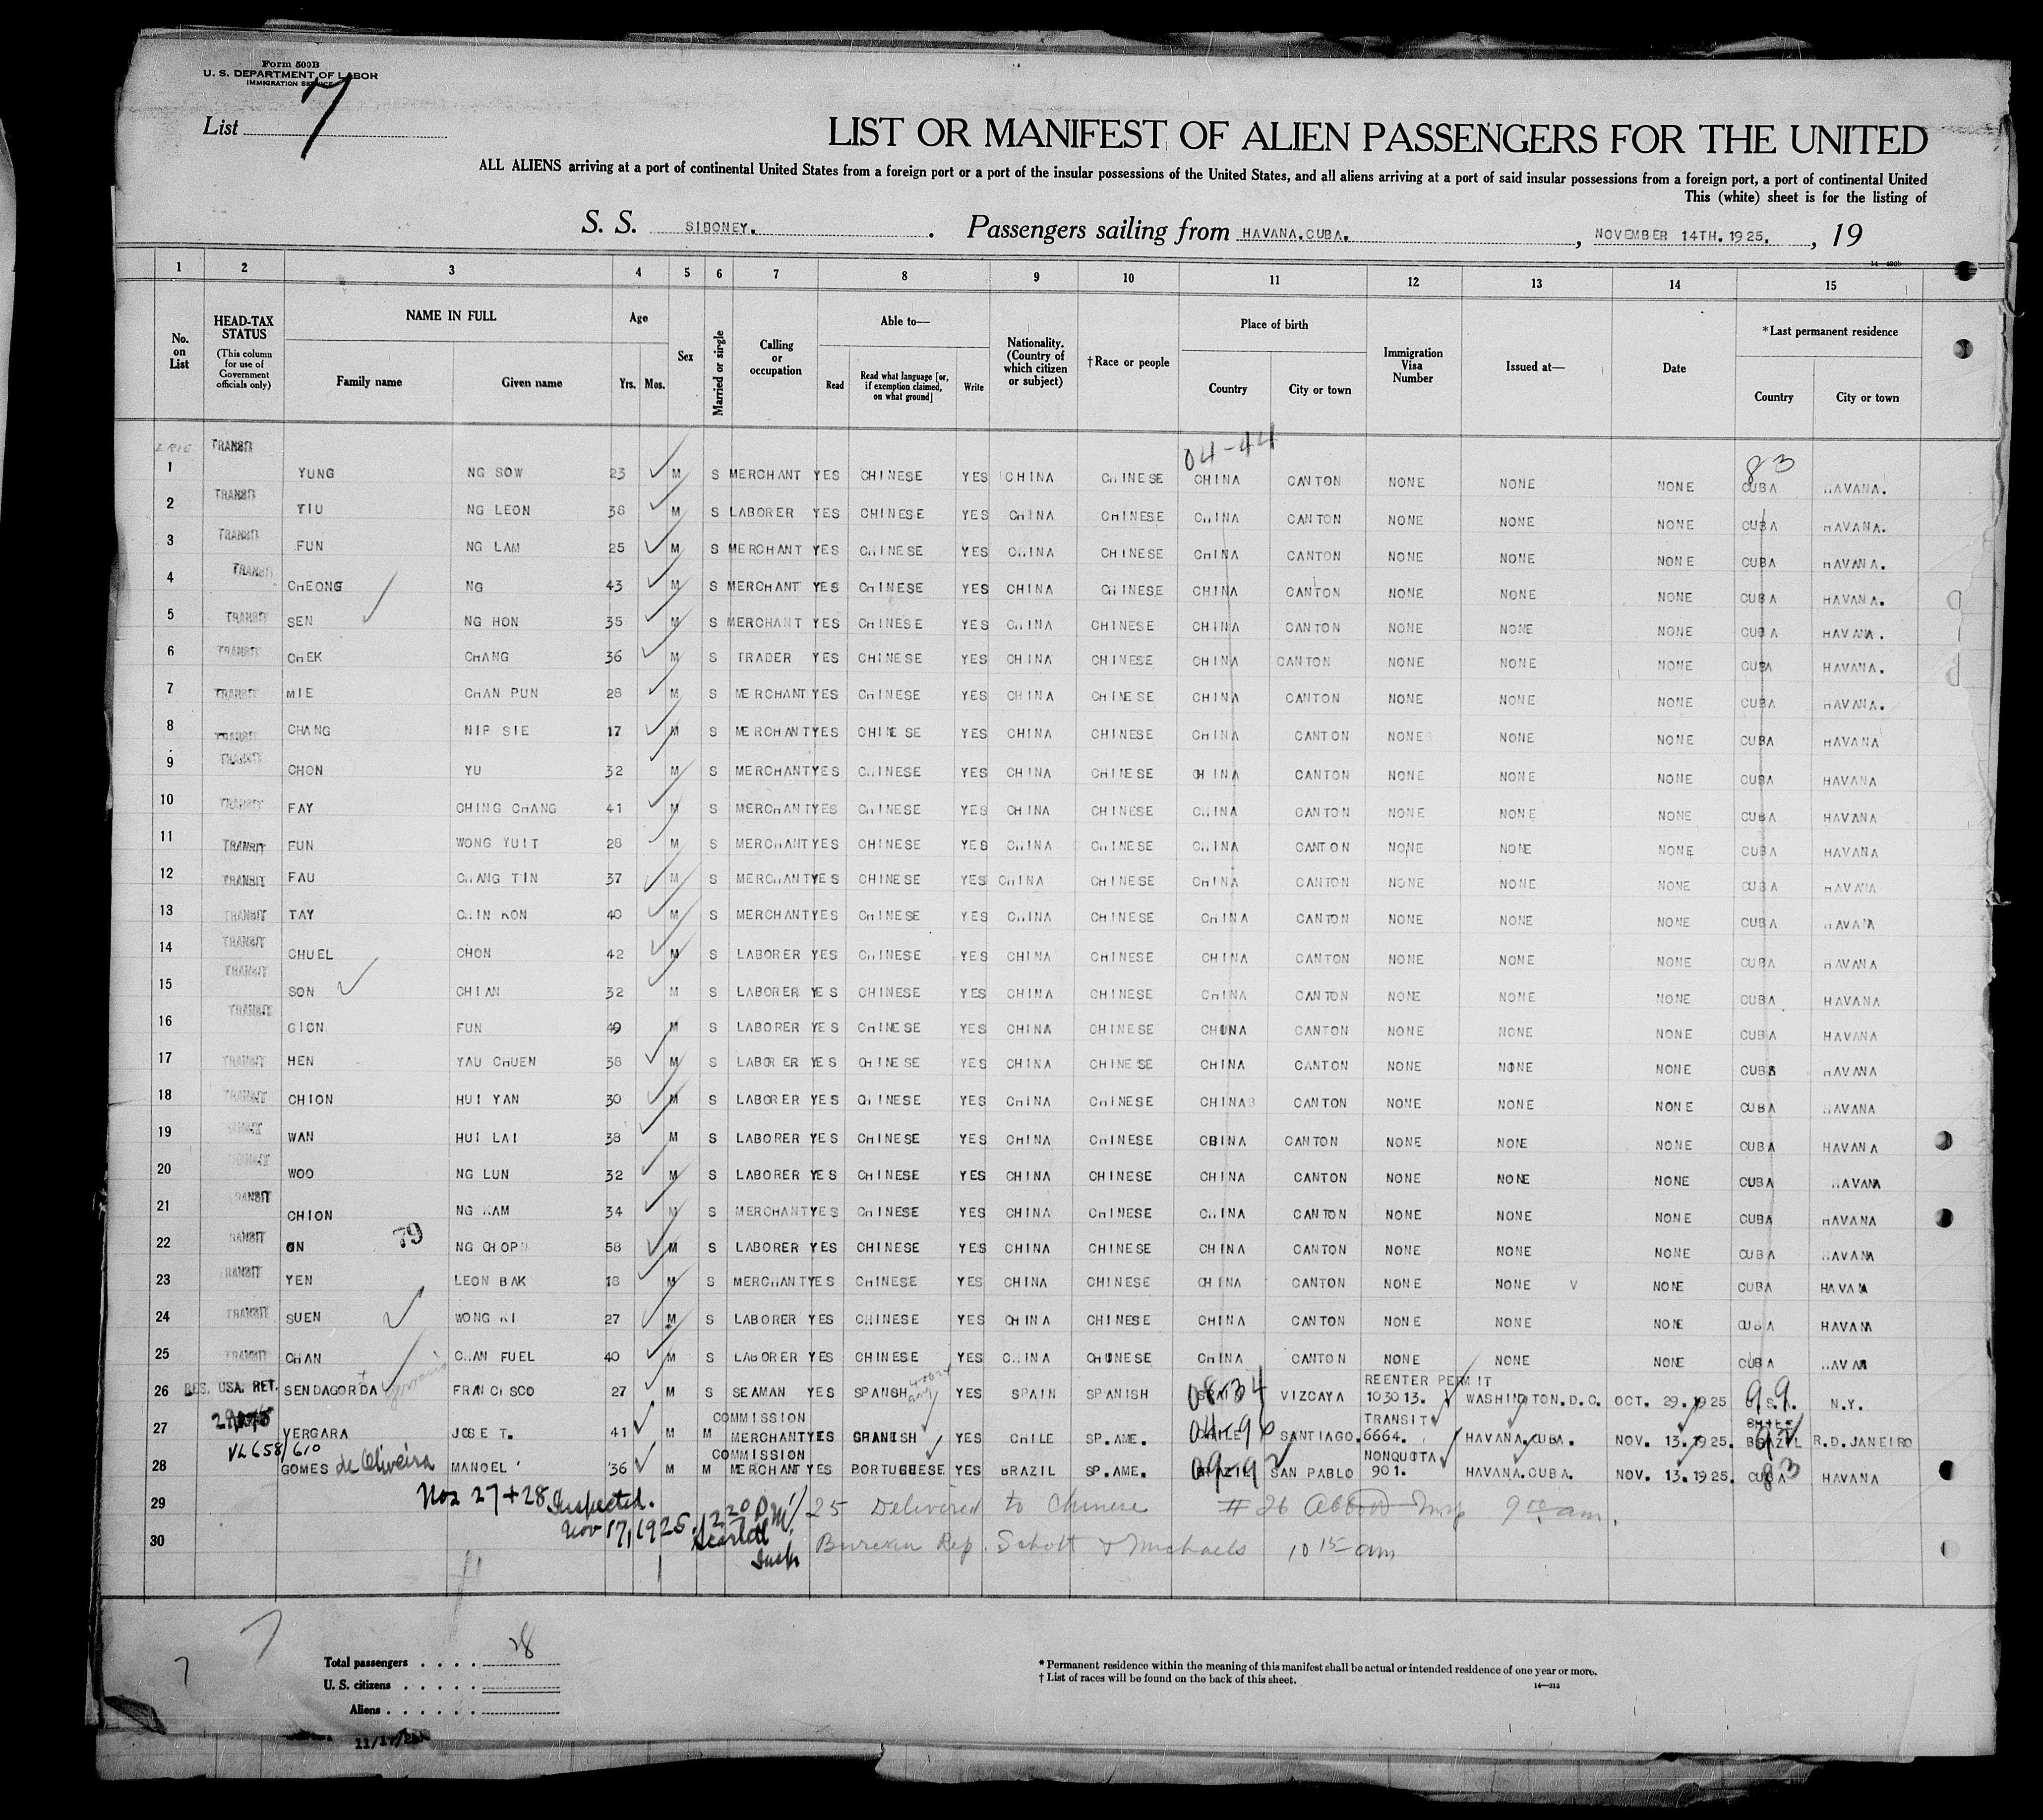 Form 500B
U. S. DEPARTMENT OF LABOR
IMMIGRATION SERVICE
List 7
LIST OR MANIFEST OF ALIEN PASSENGERS FOR THE UNITED
ALL ALIENS arriving at a port of continental United States from a foreign port or a port of the insular possessions of the United States, and all aliens arriving at a port of said insular possessions from a foreign port, a port of continental United
This (white) sheet is for the listing of
S. S. SIBONEY. Passengers sailing from HAVANA.CUBA. , NOVEMBER 14TH.1925. , 19
1 2 3 4 5 6 7 8 9 10 11 12 13 14 15
No. on List HEAD-TAX STATUS (This column for use of Government officials only) NAME IN FULL Family name Given name Age Yrs. Mos. Sex Married or single Calling or occupation Able to— Read Read what language [or, if exemption claimed, on what ground] Write Nationality. (Country of which citizen or subject) †Race or people Place of birth Country City or town Immigration Visa Number Issued at— Date *Last permanent residence Country City or town
04-44 83
1 TRANSIT YUNG NG SOW 23 M S MERCHANT YES CHINESE YES CHINA CHINESE CHINA CANTON NONE NONE NONE CUBA HAVANA.
2 TRANSIT YIU NG LEON 38 M S LABORER YES CHINESE YES CHINA CHINESE CHINA CANTON NONE NONE NONE CUBA HAVANA.
3 TRANSIT FUN NG LAM 25 M S MERCHANT YES CHINESE YES CHINA CHINESE CHINA CANTON NONE NONE NONE CUBA HAVANA.
4 TRANSIT CHEONG NG 43 M S MERCHANT YES CHINESE YES CHINA CHINESE CHINA CANTON NONE NONE NONE CUBA HAVANA.
5 TRANSIT SEN NG HON 35 M S MERCHANT YES CHINESE YES CHINA CHINESE CHINA CANTON NONE NONE NONE CUBA HAVANA.
6 TRANSIT CHEK CHANG 36 M S TRADER YES CHINESE YES CHINA CHINESE CHINA CANTON NONE NONE NONE CUBA HAVANA.
7 TRANSIT MIE CHAN PUN 28 M S MERCHANT YES CHINESE YES CHINA CHINESE CHINA CANTON NONE NONE NONE CUBA HAVANA.
8 TRANSIT CHANG NIP SIE 17 M S MERCHANT YES CHINESE YES CHINA CHINESE CHINA CANTON NONE NONE NONE CUBA HAVANA
9 TRANSIT CHON YU 32 M S MERCHANT YES CHINESE YES CHINA CHINESE CHINA CANTON NONE NONE NONE CUBA HAVANA
10 TRANSIT FAY CHING CHANG 41 M S MERCHANT YES CHINESE YES CHINA CHINESE CHINA CANTON NONE NONE NONE CUBA HAVANA
11 TRANSIT FUN WONG YUIT 28 M S MERCHANT YES CHINESE YES CHINA CHINESE CHINA CANTON NONE NONE NONE CUBA HAVANA
12 TRANSIT FAU CHANG TIN 37 M S MERCHANT YES CHINESE YES CHINA CHINESE CHINA CANTON NONE NONE NONE CUBA HAVANA
13 TRANSIT TAY CHIN KON 40 M S MERCHANT YES CHINESE YES CHINA CHINESE CHINA CANTON NONE NONE NONE CUBA HAVANA
14 TRANSIT CHUEL CHON 42 M S LABORER YES CHINESE YES CHINA CHINESE CHINA CANTON NONE NONE NONE CUBA HAVANA
15 TRANSIT SON CHIAN 32 M S LABORER YES CHINESE YES CHINA CHINESE CHINA CANTON NONE NONE NONE CUBA HAVANA
16 TRANSIT GION FUN 49 M S LABORER YES CHINESE YES CHINA CHINESE CHINA CANTON NONE NONE NONE CUBA HAVANA
17 TRANSIT HEN YAU CHUEN 38 M S LABORER YES CHINESE YES CHINA CHINESE CHINA CANTON NONE NONE NONE CUBA HAVANA
18 TRANSIT CHION HUI YAN 30 M S LABORER YES CHINESE YES CHINA CHINESE CHINA CANTON NONE NONE NONE CUBA HAVANA
19 TRANSIT WAN HUI LAI 38 M S LABORER YES CHINESE YES CHINA CHINESE CBINA CANTON NONE NONE NONE CUBA HAVANA
20 TRANSIT WOO NG LUN 32 M S LABORER YES CHINESE YES CHINA CHINESE CHINA CANTON NONE NONE NONE CUBA HAVANA
21 TRANSIT CHION NG HAM 34 M S MERCHANT YES CHINESE YES CHINA CHINESE CHINA CANTON NONE NONE NONE CUBA HAVANA
22 TRANSIT ON 79 NG CHOP 58 M S LABORER YES CHINESE YES CHINA CHINESE CHINA CANTON NONE NONE NONE CUBA HAVANA
23 TRANSIT YEN LEON BAK 18 M S MERCHANT YES CHINESE YES CHINA CHINESE CHINA CANTON NONE NONE V NONE CUBA HAVANA
24 TRANSIT SUEN WONG KI 27 M S LABORER YES CHINESE YES CHINA CHINESE CHINA CANTON NONE NONE NONE CUBA HAVANA
25 TRANSIT CHAN CHAN FUEL 40 M S LABORER YES CHINESE YES CHINA CHUNESE CHINA CANTON NONE NONE NONE CUBA HAVANA
26 RES. USA. RET. SENDAGORTA FRANCISCO 27 M S SEAMAN YES SPANSH YES SPAIN SPANISH SPAIN 0834 VIZCAYA REENTER PERMIT 103013. WASHINGTON.D.C. OCT. 29.1925 U.S.A. 99 N.Y.
27 VERGARA JOSE T. 41 M M COMMISSION MERCHANT YES SPANISH YES CHILE SP.AME. CHILE 0496 SANTIAGO. TRANSIT 6664. HAVANA.CUBA. NOV. 13.1925. CHILE BRAZIL R.D.JANEIRO
VL658/610
28 GOMES de Oliveira MANOEL 36 M M COMMISSION MERCHANT YES PORTUGUESE YES BRAZIL SP.AME. BRAZIL 0992 SAN PABLO NONQUOTA 901. HAVANA.CUBA. NOV. 13.1925. CUBA 83 HAVANA
29 Nos 27+28 Inspected. Nov 17, 1925. 1220 P.M. 25 Delivered to Chinese #26 9 00 am.
30 Scarlett Insp Bureau Rep. Schott & Michaels 10 15 am
7
7
Total passengers . . . . 28
U. S. citizens . . . . .
Aliens . . . . . .
11/17/25
* Permanent residence within the meaning of this manifest shall be actual or intended residence of one year or more.
† List of races will be found on the back of this sheet.
14—213